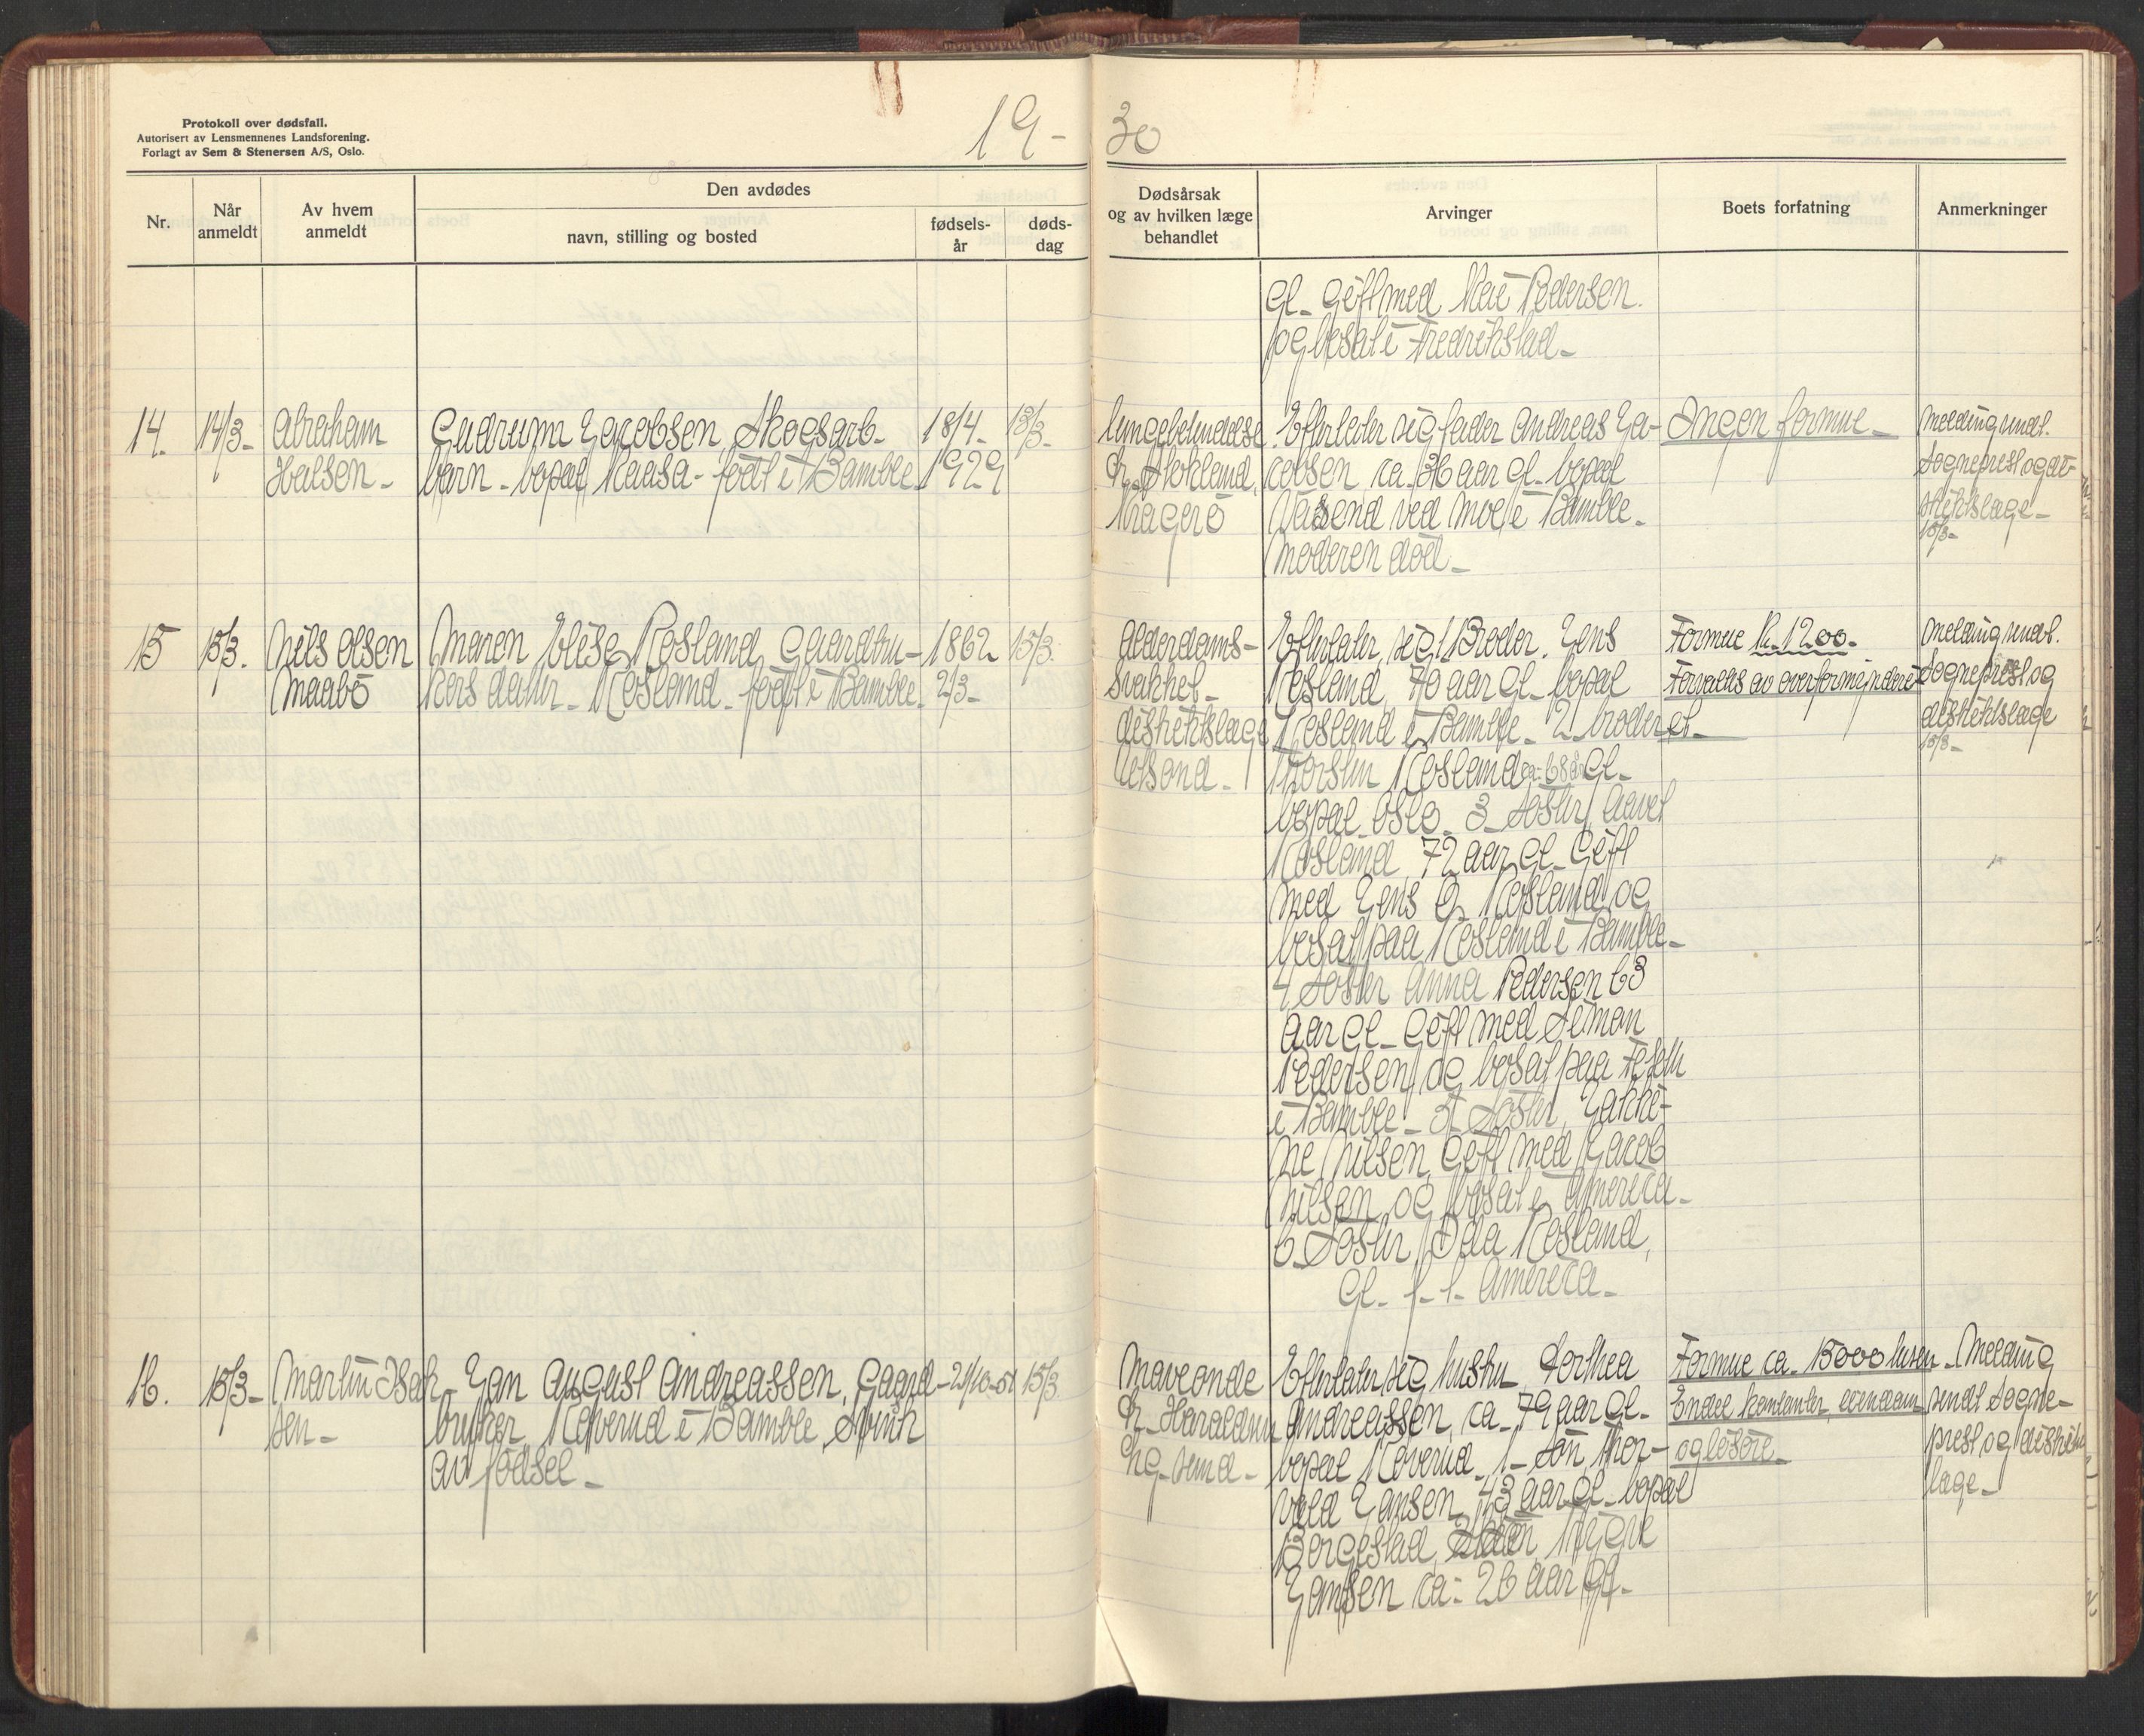 Protokoll over dødsfall.
Autorisert av Lensmennenes Landsforening.
Forlagt av Sem & Stenersen A/S, Oslo.
19-
30
Nr.
Når
anmeldt
Av hvem
anmeldt
Den avdødes
navn, stilling og bosted
fødsels-
år
døds-
dag
Dødsårsak
og av hvilken læge
behandlet
Arvinger
Boets forfatning
Anmerkninger
gl- gift med Pedersen.
og bosat i Fredrikstad-
14.
14/3-
Abraham
Halsen-
Gudrunn Jacobsen, Skogsarb-
barn- bopæl Kaasa- født i Bamble-
18/4-
1929
13/3-
lungebetendelse
dr. Stokland,
Kragerö
Efterlater sig fader Andreas Ja-
cobsen ca. 36 aar gl- bopæl
ved Moe i Bamble-
Moderen död-
Ingen formue-
Melding sendt.
Sogneprest og di-
striktslæge-
15/3-
15
15/3.
Nils Olsen
Maabö
Maren Elise Rosland, Gaardbru-
kers datter- Rosland- født i Bamble-
1862
2/3-
13/3.
Alderdoms-
svakhet-
distriktslæge
Efterlater sig 1 Broder. Jens
Rosland 70 aar gl- bopæl
Rosland i Bamble- 2 broder
Rosland ca- 68 år gl-
bopæl Oslo- 3- søster
Rosland 72 aar gl- Gift
med Jens Rosland og
bosat paa Rosland i Bamble-
4 søster Anna Pedersen 63
aar gl- Gift med Siman
Pedersen og bosat paa
i Bamble- 5- søster,
ne Nilsen, Gift med Jacob
Nilsen og bosat i America-
6 Søster Rosland,
gl- America-
Formue Kr. 1200-
Forvaltes av overformynderi-
et-
Melding sendt.
Sogneprest og
distriktslæge
15/3-
16.
15/3-
Martin Isak-
sen-
Jan August Andreassen, Gaard-
bruker, Röverud i Bamble, Svensk
av födsel-
15/3
Maveonde
dr. Haraldsen
Efterlater sig hustru Dorthea
Andreassen, ca- 79 aar gl-
bopæl Röverud- 1- Sön, Thor-
vald Jansen, 43 aar gl- bopæl
Borgestad, Trygve
Jansen ca- 26 aar gl-
Formue ca- 15000 kroner-
Endel kontanter, eiendom-
og lösöre-
Melding
sendt Sogne-
prest og distrikts
læge-